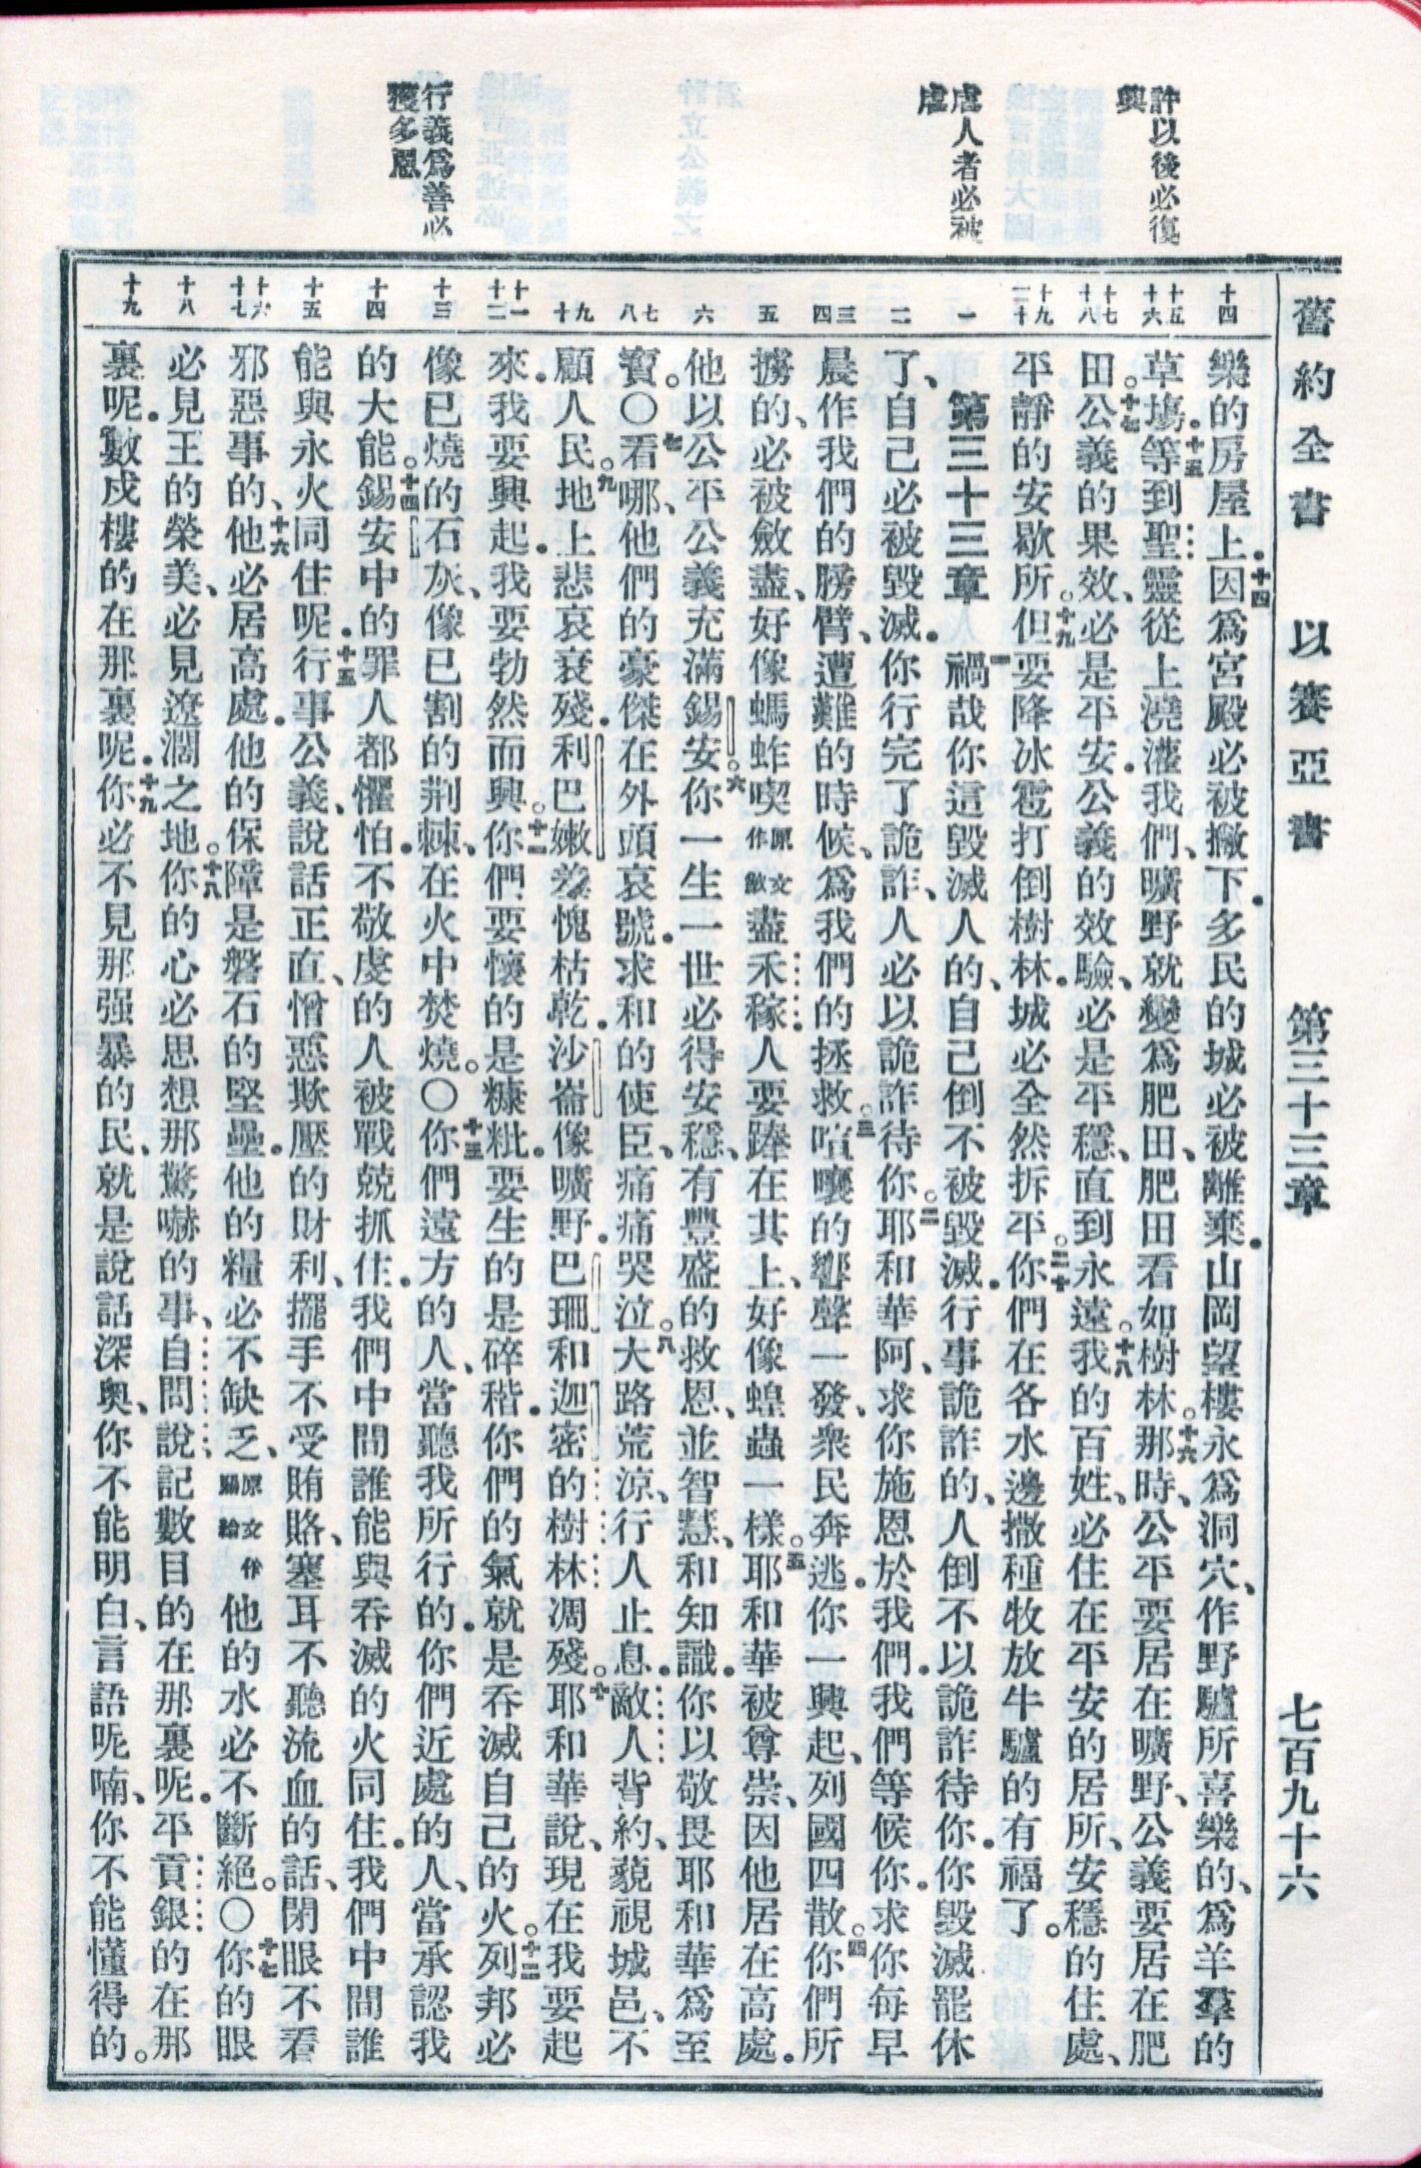 舊約全書 以賽亞書 第三十三章 七百九十六
許以後必復
興
虐人者必被
虐
行義爲善必
獲多恩
十四
十五
十六
十七
十八
十九
二十
一
二
三
四
五
六
七
八
九
十
十一
十二
十三
十四
十五
十六
十七
十八
十九
樂的房屋上．十四因爲宮殿必被撇下．多民的城必被離棄．山岡望樓永爲洞穴、作野驢所喜樂的、爲羊羣的
草塲．十五等到聖靈從上澆灌我們、曠野就變爲肥田、肥田看如樹林。十六那時、公平要居在曠野、公義要居在肥
田。十七公義的果效、必是平安．公義的效驗、必是平穩、直到永遠。十八我的百姓、必住在平安的居所、安穩的住處、
平靜的安歇所。十九但要降冰雹打倒樹林．城必全然拆平。二十你們在各水邊撒種牧放牛驢的有福了。
第三十三章 一禍哉你這毀滅人的、自己倒不被毀滅．行事詭詐的、人倒不以詭詐待你．你毀滅罷休
了、自己必被毀滅．你行完了詭詐、人必以詭詐待你。二耶和華阿、求你施恩於我們．我們等候你．求你每早
晨作我們的膀臂、遭難的時候、爲我們的拯救。三喧嚷的響聲一發、衆民奔逃．你一興起、列國四散。四你們所
擄的、必被斂盡、好像螞蚱喫原文作斂盡禾稼．人要蹦在其上、好像蝗蟲一樣。五耶和華被尊崇、因他居在高處．
他以公平公義充滿錫安。六你一生一世必得安穩、有豐盛的救恩、並智慧、和知識．你以敬畏耶和華爲至
寶。○七看哪、他們的豪傑在外頭哀號．求和的使臣、痛痛哭泣。八大路荒涼、行人止息．敵人背約、藐視城邑、不
顧人民。九地上悲哀衰殘．利巴嫩羞愧枯乾．沙崙像曠野．巴珊和迦密的樹林凋殘。十耶和華說、現在我要起
來．我要興起．我要勃然而興。十一你們要懷的是糠粃．要生的是碎稭．你們的氣就是吞滅自己的火。十二列邦必
像已燒的石灰、像已割的荆棘、在火中焚燒。○十三你們遠方的人、當聽我所行的．你們近處的人、當承認我
的大能。十四錫安中的罪人都懼怕．不敬虔的人被戰兢抓住．我們中間誰能與吞滅的火同住．我們中間誰
能與永火同住呢．十五行事公義、說話正直、憎惡欺壓的財利、擺手不受賄賂、塞耳不聽流血的話、閉眼不看
邪惡事的、十六他必居高處．他的保障是磐石的堅壘．他的糧必不缺乏、原文作賜給他的水必不斷絕。○十七你的眼
必見王的榮美、必見遼濶之地。十八你的心必思想那驚嚇的事、自問說記數目的在那裏呢．平貢銀的在那
裏呢．數戍樓的在那裏呢．十九你必不見那强暴的民、就是說話深奧、你不能明白、言語呢喃、你不能懂得的。